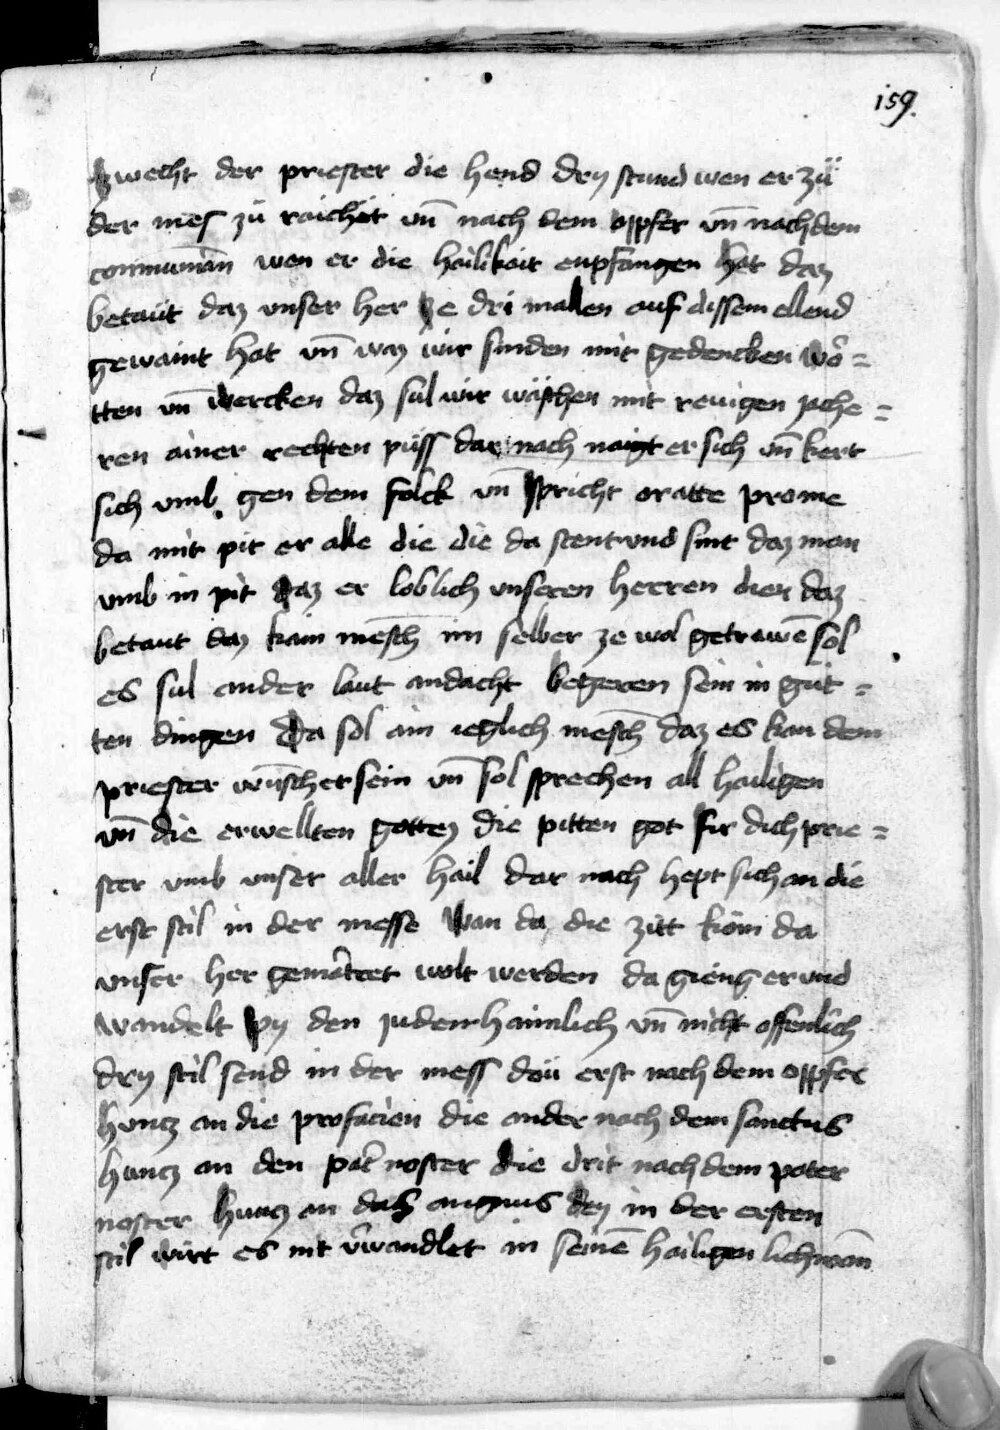 159.
zwecht der priester die hend dry stund wen er zů
der mes zů raichet vn̄ nach dem opfer vn̄ nach dem
communian̄ wen er die hailikait enpfangen hat daz
betaüt daz vnser her ze dri mallen auf dissem ellend
gewaint hat vn̄ waz wir sinden mit gedencken wo᷑=
tten vn̄ wercken daz sul wir wäschen mit reuigen zche=
ren ainer rechten püss dar nach naigt er sich vn̄ kert
sich vmb gen dem folck vn̄ spricht oratte pro me
da mit pit er alle die die da stent vnd sint daz man
vmb in pit daz er loblich vnseren herren dien daz
betaut daz kain mēsch im selber ze wol getrawē sol
es sul ander laut andacht begeren sein in gůt=
ten dingen Da sol ain ieglich mēsch daz es kan dem
priester wūscher sein vn̄ sol sprechen all hailigen
vn̄ die erwellten gottez die pitten got fir dich prie=
ster vmb vnser aller hail dar nach hept sich an die
erst stil in der messe Wan da die zitt köm da
vnser her gemo᷑tret wolt werden da gieng er vnd
wandelt py den juden haimlich vn̄ nicht offenlich
dry stil send in der mess däü erst nach dem opfer
huntz an die profacien die ander nach dem sanctus
huntz an den pat̄ noster die drit nach dem pater
noster huntz an daz angnus dey in der ersten
stil wirt es nit v̄wandlet in seinē hailigen lichnam̄